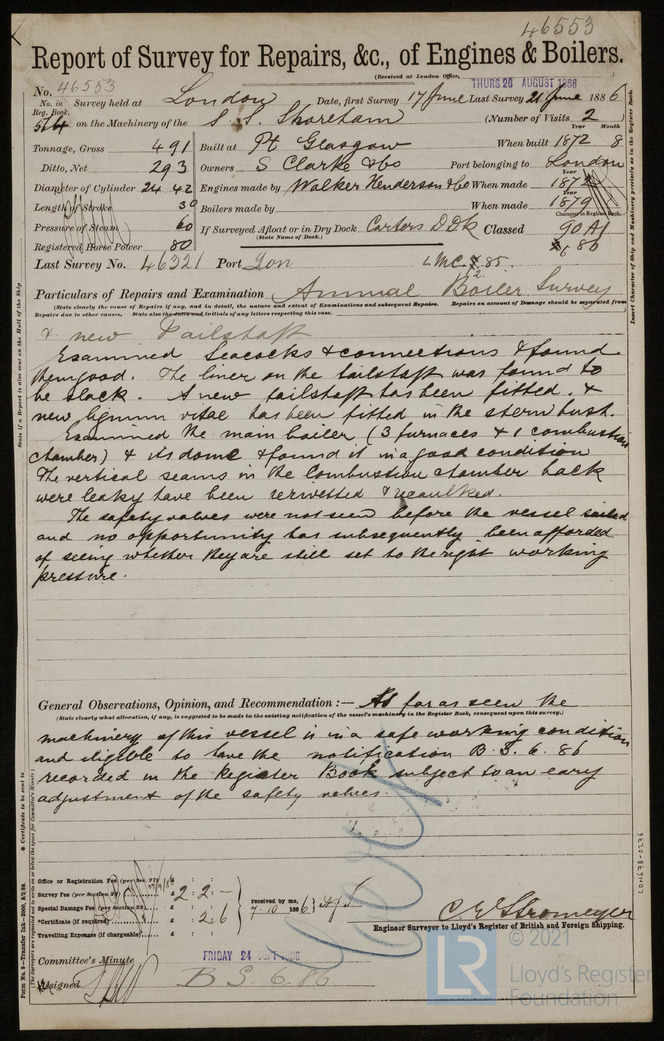 46553
Report of Survey for Repairs, &c., of Engines & Boilers.
(Received at London Office, THURS 26 AUGUST 1886
No. 46553
No. in Reg. Book. Survey held at London Date, first Survey 17 June Last Survey 21 June 1886
564 on the Machinery of the S.S. Shoreham (Number of Visits 2
Year Month
Tonnage, Gross 491 Built at Pt Glasgow When built 1872 8
Ditto, Net 293 Owners S Clarke & Co Port belonging to London
Year
Diameter of Cylinder 24 42 Engines made by Walker Henderson & Co When made 1872
Year
Length of Stroke 30 Boilers made by When made 1879
Character in Register Book.
Pressure of Steam 60 If Surveyed Afloat or in Dry Dock Carters D Dk Classed 90 A1
(State Name of Dock.)
Registered Horse Power 80 6 86
Last Survey No. 46321 Port Lon LMC 2. 85
Particulars of Repairs and Examination Annual Boiler Survey
(State clearly the cause of Repairs if any, and in detail, the nature and extent of Examinations and subsequent Repairs. Repairs on account of Damage should be separated from
Repairs due to other causes. State also the dates and initials of any letters respecting this case.
& new Tailshaft
Examined Seacocks & connections & found
them good. The liner on the tailshaft was found to
be slack. A new tailshaft has been fitted. &
new lignum vitae has been fitted in the stern bush.
Examined the main boiler (3 furnaces & 1 combustion
chamber) & its dome & found it in a good condition
The vertical seams in the Combustion chamber back
were leaky have been rerivetted & recaulked.
The safety valves were not seen before the vessel sailed
and no opportunity has subsequently been afforded
of seeing whether they are still set to the right working
pressure.
General Observations, Opinion, and Recommendation :— As far as seen the
(State clearly what alteration, if any, is suggested to be made in the existing notification of the vessel's machinery in the Register Book, consequent upon this survey.)
machinery of this vessel is in a safe working condition
and eligible to have the notification B.S. 6. 86
recorded in the Register Book subject to an early
adjustment of the safety valves.
Office or Registration Fee
Survey Fee (per Section 28) £ 2 : 2 : –
Special Damage Fee (per Section 28)
Certificate (if required) £ : 2 : 6
Travelling Expenses (if chargeable)
received by me,
7. 10 1886
C E Stromeyer
Engineer Surveyor to Lloyd's Register of British and Foreign Shipping.
Committee's Minute FRIDAY 24 SEPT 1886
Assigned B S. 6. 86
State if a Report is also sent on the Hull of the Ship
Insert Character of Ship and Machinery precisely as in the Register Book.
Form No. 9—Transfer Ink
Certificate to be sent to
LON478-0276
LR
© 2021
Lloyd's Register
Foundation